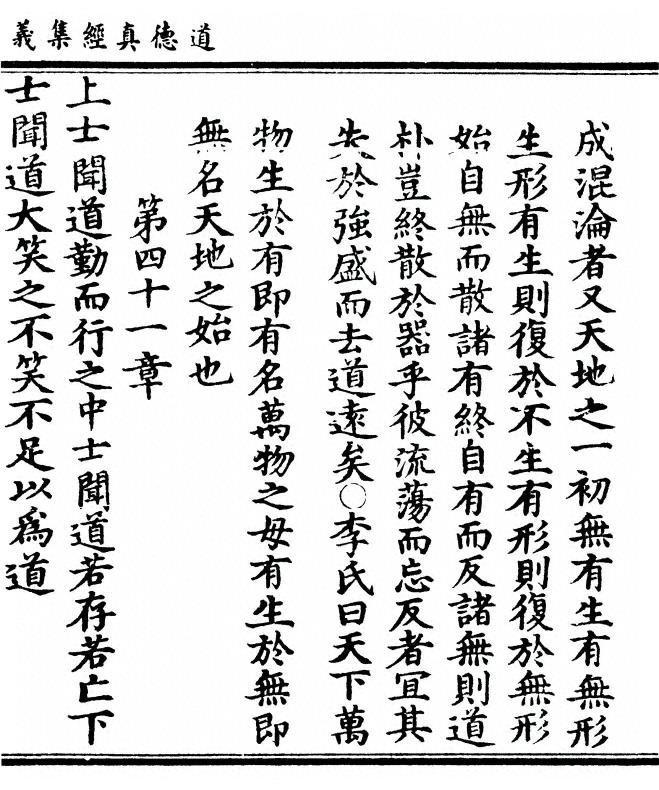 道德真經集義
成混淪者又天地之一初無有生有無形
生形有生則復於不生有形則復於無形
始自無而散諸有終自有而反諸無則道
朴豈終散於器乎彼流蕩而忘反者宜其
失於強盛而去道遠矣○李氏曰天下萬
物生於有即有名萬物之母有生於無即
無名天地之始也
第四十一章
上士聞道勤而行之中士聞道若存若亡下
士聞道大笑之不笑不足以爲道